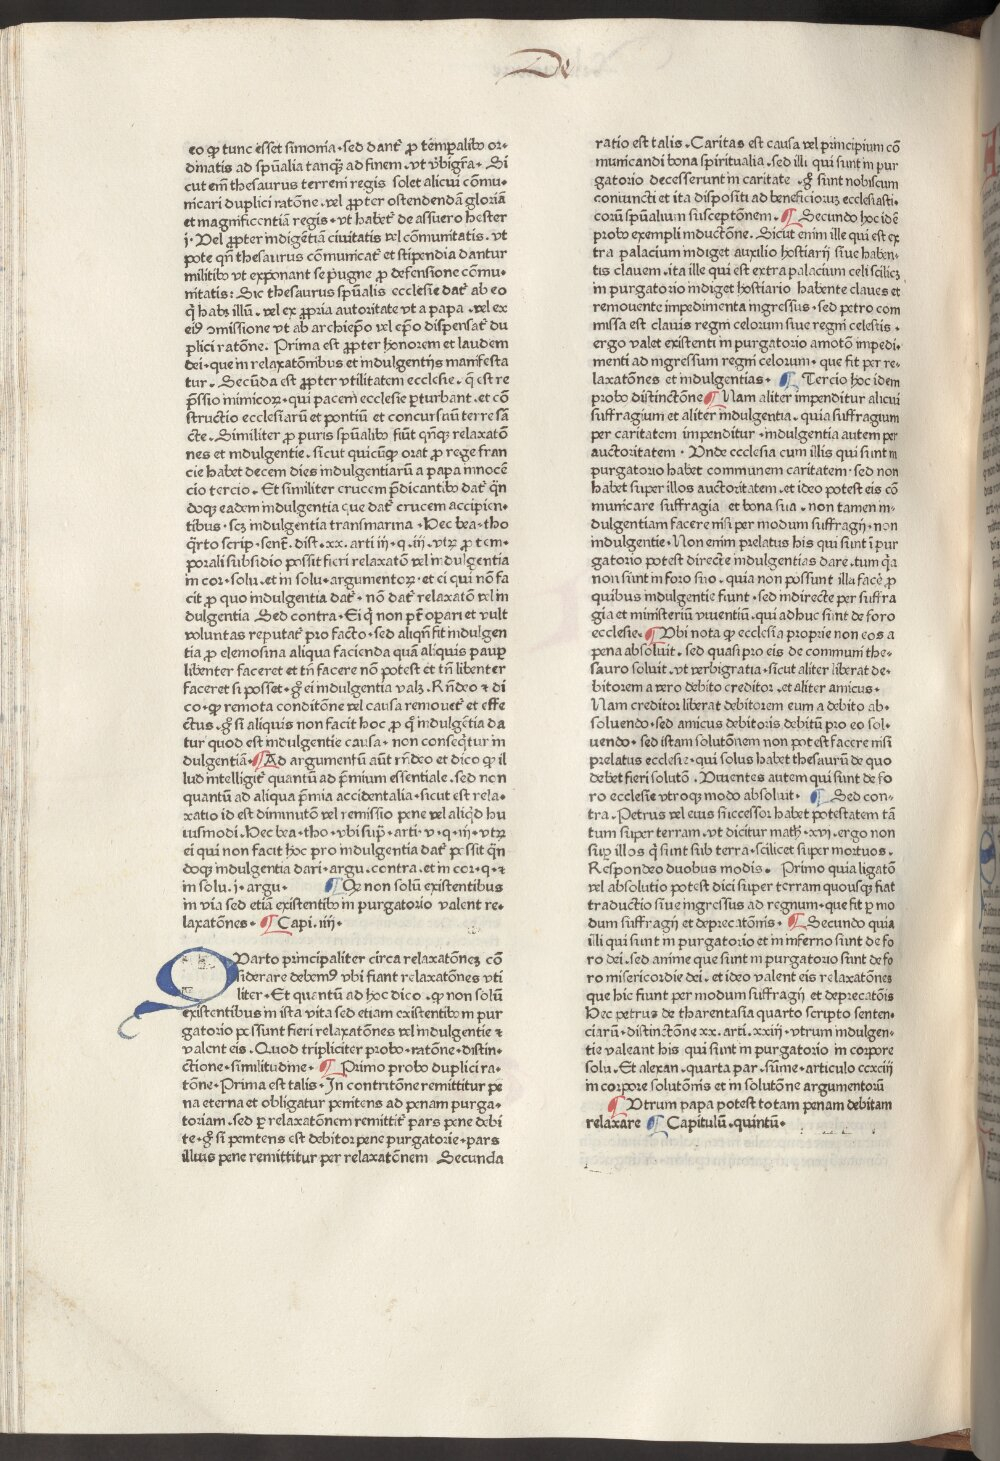 De
eo qꝫ tunc esset simonia. sed dant᷑ ꝓ tẽpꝑalibꝰ or-
dinatis ad spũalia tanqꝫ ad finem. vt ṽbigr̃a. Si
cut em̃ thesaurus terreni regis solet alicui cõmu-
nicari duplici ratõne. vel ꝓpter ostendendã gloriã
et magnificentiã regis. vt habet᷑ de assuero hester
j. Vel ꝓpter indigẽtiã ciuitatis vel cõmunitatis. vt
pote qñ thesaurus cõmunicat᷑ et stipendia dantur
militibꝰ vt exponant se pugne ꝓ defensione cõmu-
nitatis: Sic thesaurus spũalis ecclesie dat᷑ ab eo
q̃ habꝫ illũ. vel ex ꝓpria autoritate vt a papa. vel ex
eiꝰ ↄmissione vt ab archiep̃o vel ep̃o dispensat᷑ du
plici ratõne. Prima est ꝓpter honorem et laudem
dei. que in relaxatõnibus et indulgentijs manifesta
tur. Secũda est ꝓpter vtilitatem ecclesie. q̃ est re
p̃ssio inimicoꝝ. qui pacem ecclesie ꝑturbant. et cõ
structio ecclesiarũ et pontiũ et concursus terre sã
cte. Similiter ꝓ puris spũalibꝰ fiũt qñqꝫ relaxatõ
nes et indulgentie. sicut quicũqꝫ orat ꝓ rege fran
cie habet decem dies indulgentiarũ a papa innocẽ
cio tercio. Et similiter crucem p̃dicantibꝰ dat᷑ qñ
doqꝫ eadem indulgentia que dat᷑ crucem accipien-
tibus. scꝫ indulgentia transmarina. Hec bea. tho
q̃rto scrip. sent̃. dist. xx. arti iij. q. iij. vtꝝ ꝓ tem-
porali subsidio possit fieri relaxatõ vel indulgentia
in cor. solu. et in solu. argumentoꝝ. et ei qui nõ fa
cit ꝓ quo indulgentia dat᷑. nõ dat᷑ relaxatõ vel in
dulgentia Sed contra. Ei q̃ non põt oꝑari et vult
voluntas reputat᷑ pro facto. sed aliqñ fit indulgen
tia ꝓ elemosina aliqua facienda quã aliquis pauꝑ
libenter faceret et tñ facere nõ potest et tñ libenter
faceret si posset. gͦ ei indulgentia valꝫ. Rñdeo ⁊ di
co. qꝫ remota conditõne vel causa remouet᷑ et effe
ctus. gͦ si aliquis non facit hoc ꝓ q̃ indulgẽtia da
tur quod est indulgentie causa. non conseq̃tur in
dulgentiã. Ad argumentũ aut̃ rñdeo et dico qꝫ il
lud intelligit᷑ quantũ ad p̃mium essentiale. sed non
quantũ ad aliqua p̃mia accidentalia. sicut est rela-
xatio id est diminutõ vel remissio pene vel aliqd̃ hu
iusmodi. Hec bea. tho. vbi sup̃. arti. v. q. iij. vtꝝ
ei qui non facit hoc pro indulgentia dat᷑ possit qñ
doqꝫ indulgentia dari. argu. contra. et in cor. q. ⁊
in solu. j. argu. Qꝫ non solũ existentibus
in via sed etiã existentibꝰ in purgatorio valent re-
laxatõnes. Capi. iiij.
Qvarto principaliter circa relaxatõnes cõ
siderare debemꝰ vbi fiant relaxatõnes vti
liter. Et quantũ ad hoc dico. qꝫ non solũ
existentibus in ista vita sed etiam existentibꝰ in pur
gatorio possunt fieri relaxatõnes vel indulgentie ⁊
valent eis. Quod tripliciter probo. ratõne. distin-
ctione. similitudine. Primo probo duplici ra-
tõne. Prima est talis. In contritõne remittitur pe
na eterna et obligatur penitens ad penam purga-
toriam. sed ꝑ relaxatõnem remittit᷑ pars pene debi
te. gͦ si penitens est debitor pene purgatorie. pars
illius pene remittitur per relaxatõnem Secunda
ratio est talis. Caritas est causa vel principium cõ
municandi bona spiritualia. sed illi qui sunt in pur
gatorio decesserunt in caritate. gͦ sunt nobiscum
coniuncti et ita dispositi ad beneficiorum ecclesiasti-
corũ spũalium susceptõnem. Secundo hoc idẽ
probo exempli inductõne. Sicut enim ille qui est ex
tra palacium indiget auxilio hostiarij siue haben-
tis clauem. ita ille qui est extra palacium celi scilicꝫ
in purgatorio indiget hostiario habente claues et
remouente impedimenta ingressus. sed petro com
missa est clauis regni celorum siue regni celestis.
ergo valet existenti in purgatorio amotõ impedi-
menti ad ingressum regni celorum. que fit per re-
laxatõnes et indulgentias. Tercio hoc idem
probo distinctõne Nam aliter impenditur alicui
suffragium et aliter indulgentia. quia suffragium
per caritatem impenditur. indulgentia autem per
auctoritatem. Vnde ecclesia cum illis qui sunt in
purgatorio habet communem caritatem. sed non
habet super illos auctoritatem. et ideo potest eis cõ
municare suffragia et bona sua. non tamen in-
dulgentiam facere nisi per modum suffragij. non
indulgentie. Non enim prelatus his qui sunt ĩ pur
gatorio potest directe indulgentias dare. tum q̃a
non sunt in foro suo. quia non possunt illa facẽ ꝓ
quibus indulgentie fiunt. sed indirecte per suffra
gia et ministeriũ viuentiũ. qui adhuc sunt de foro
ecclesie. Vbi nota qꝫ ecclesia proprie non eos a
pena absoluit. sed quasi pro eis de communi the-
sauro soluit. vt verbigratia. sicut aliter liberat de-
bitorem a vero debito creditor. et aliter amicus.
Nam creditor liberat debitorem eum a debito ab-
soluendo. sed amicus debitoris debitũ pro eo sol-
uendo. sed istam solutõnem non potest facere nisi
prelatus ecclesie. qui solus habet thesaurũ de quo
debet fieri solutõ. Viuentes autem qui sunt de fo
ro ecclesie vtroqꝫ modo absoluit. Sed con-
tra. Petrus vel eius successor habet potestatem tã
tum super terram. vt dicitur math. xvi. ergo non
suꝑ illos q̃ sunt sub terra. scilicet super mortuos.
Respondeo duobus modis. Primo quia ligatõ
vel absolutio potest dici super terram quousqꝫ fiat
traductio siue ingressus ad regnum. que fit ꝑ mo
dum suffragij et deprecatõnis. Secundo quia
illi qui sunt in purgatorio et in inferno sunt de fo
ro dei. sed anime que sunt in purgatorio sunt de fo
ro misericordie dei. et ideo valent eis relaxatõnes
que hic fiunt per modum suffragij et deprecatõis
Hec petrus de tharentasia quarto scripto senten-
ciarũ. distinctõne xx. arti. xxiij. vtrum indulgen-
tie valeant his qui sunt in purgatorio in corpore
solu. Et alexan. quarta par. sũme. articulo ccxciij
in corpore solutõnis et in solutõne argumentorũ
Vtrum papa potest totam penam debitam
relaxare Capitulũ. quintũ.